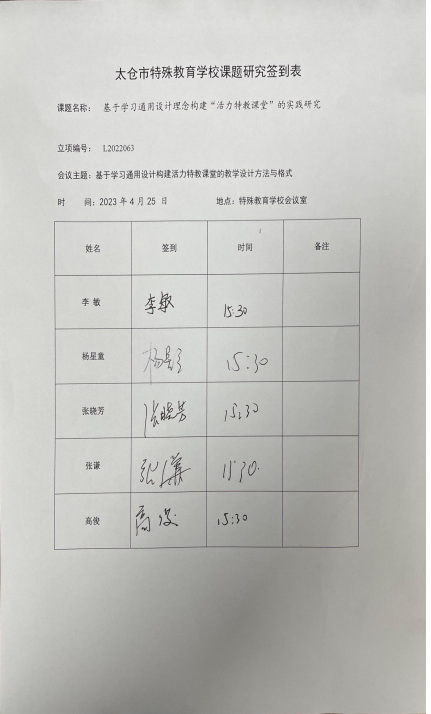 太仓市特殊教育学校课题研究签到表
课题名称： 基于学习通用设计理念构建“活力特教课堂”的实践研究
立项编号： L2022063
会议主题：基于学习通用设计构建活力特教课堂的教学设计方法与格式
时 间：2023 年 4 月 25 日 地点：特殊教育学校会议室
姓名 签到 时间 备注
李 敏 李敏 15:30
杨星童 15:30
张晓芳 张晓芳 15:30
张谦 张谦 15:30.
高俊 高俊 15:30